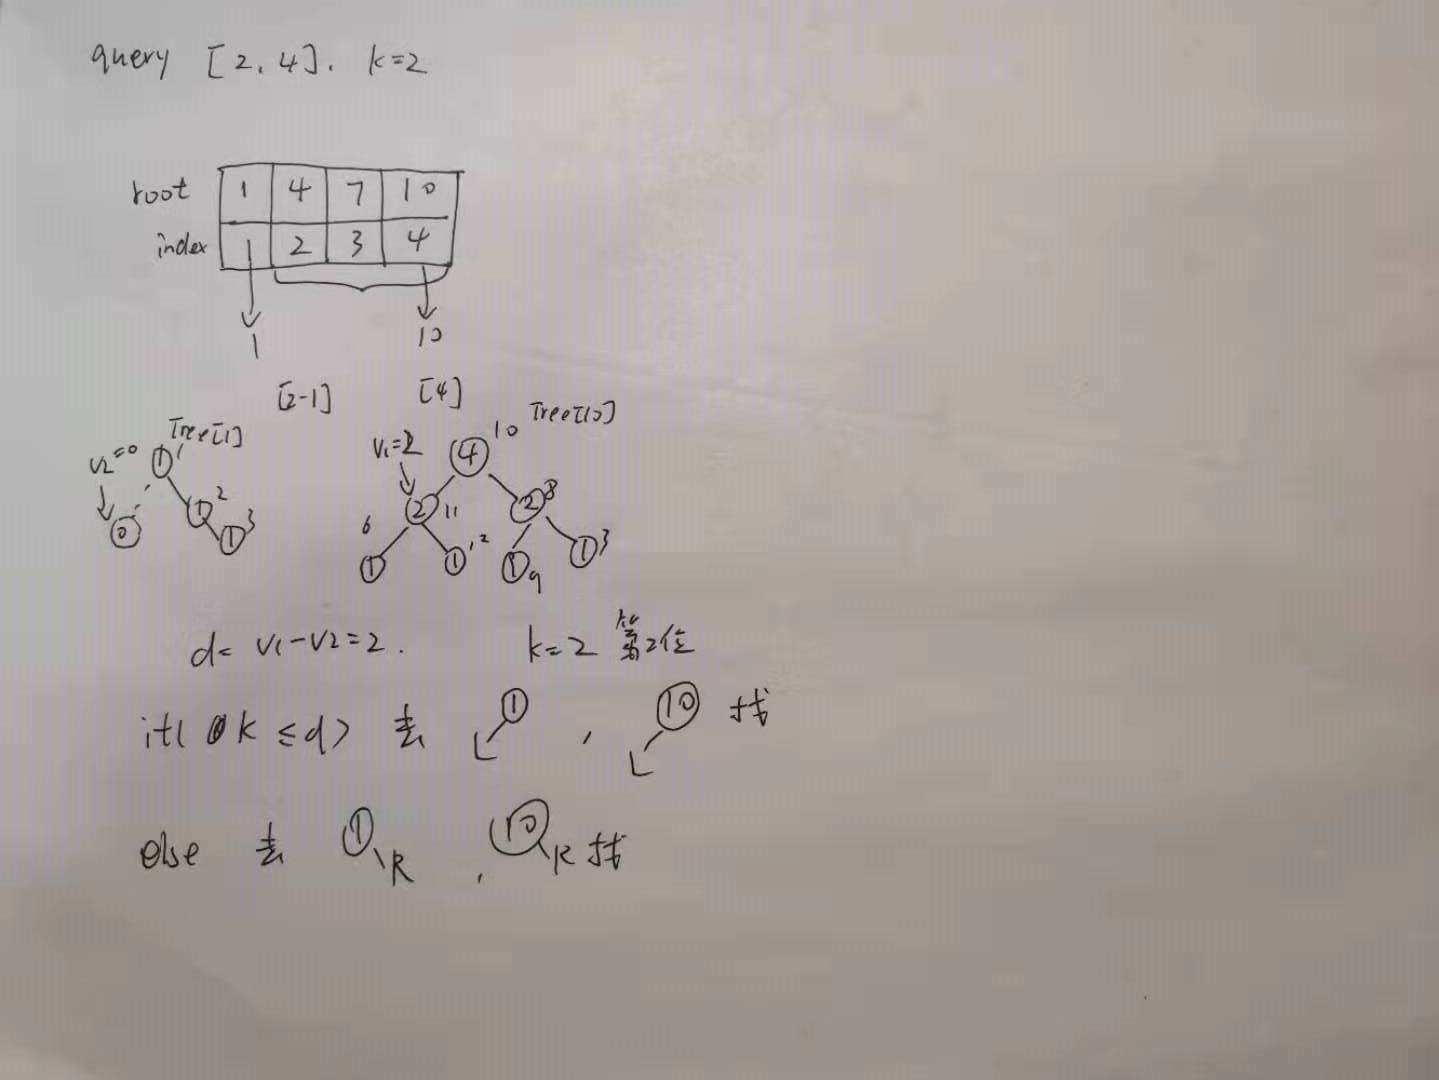 query [2, 4]. k=2
root 1 4 7 10
index 1 2 3 4
1 10
[2-1] [4]
Tree[1] 10 Tree[10]
V2=0 1 1 V1=2 4
0 1 2 1 3 2 11 2 8
6 1 1 12 1 9 1 3
d= V1-V2=2. k=2 第2位
if( k ≤d) 去 1 L , 10 L 找
else 去 1 R , 10 R 找